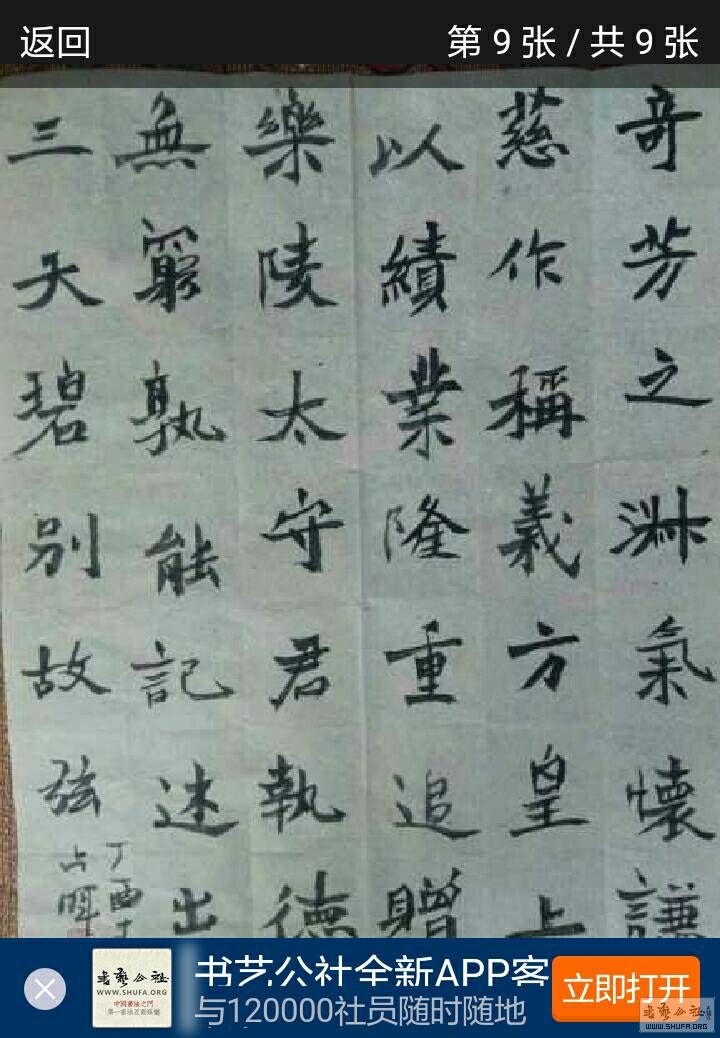 返回
第 9 张 / 共 9 张
奇芳之淋氣懷謙
慈作稱義方皇上
以績業隆重追贈
樂陵太守君執德
無窮孰能記述出
三天碧別故弦
丁酉
占暉
書藝公社
WWW.SHUFA.ORG
中國書法之門
第一書法互動媒體
书艺公社全新APP客
与120000社员随时随地
立即打开
書藝公社
WWW.SHUFA.ORG